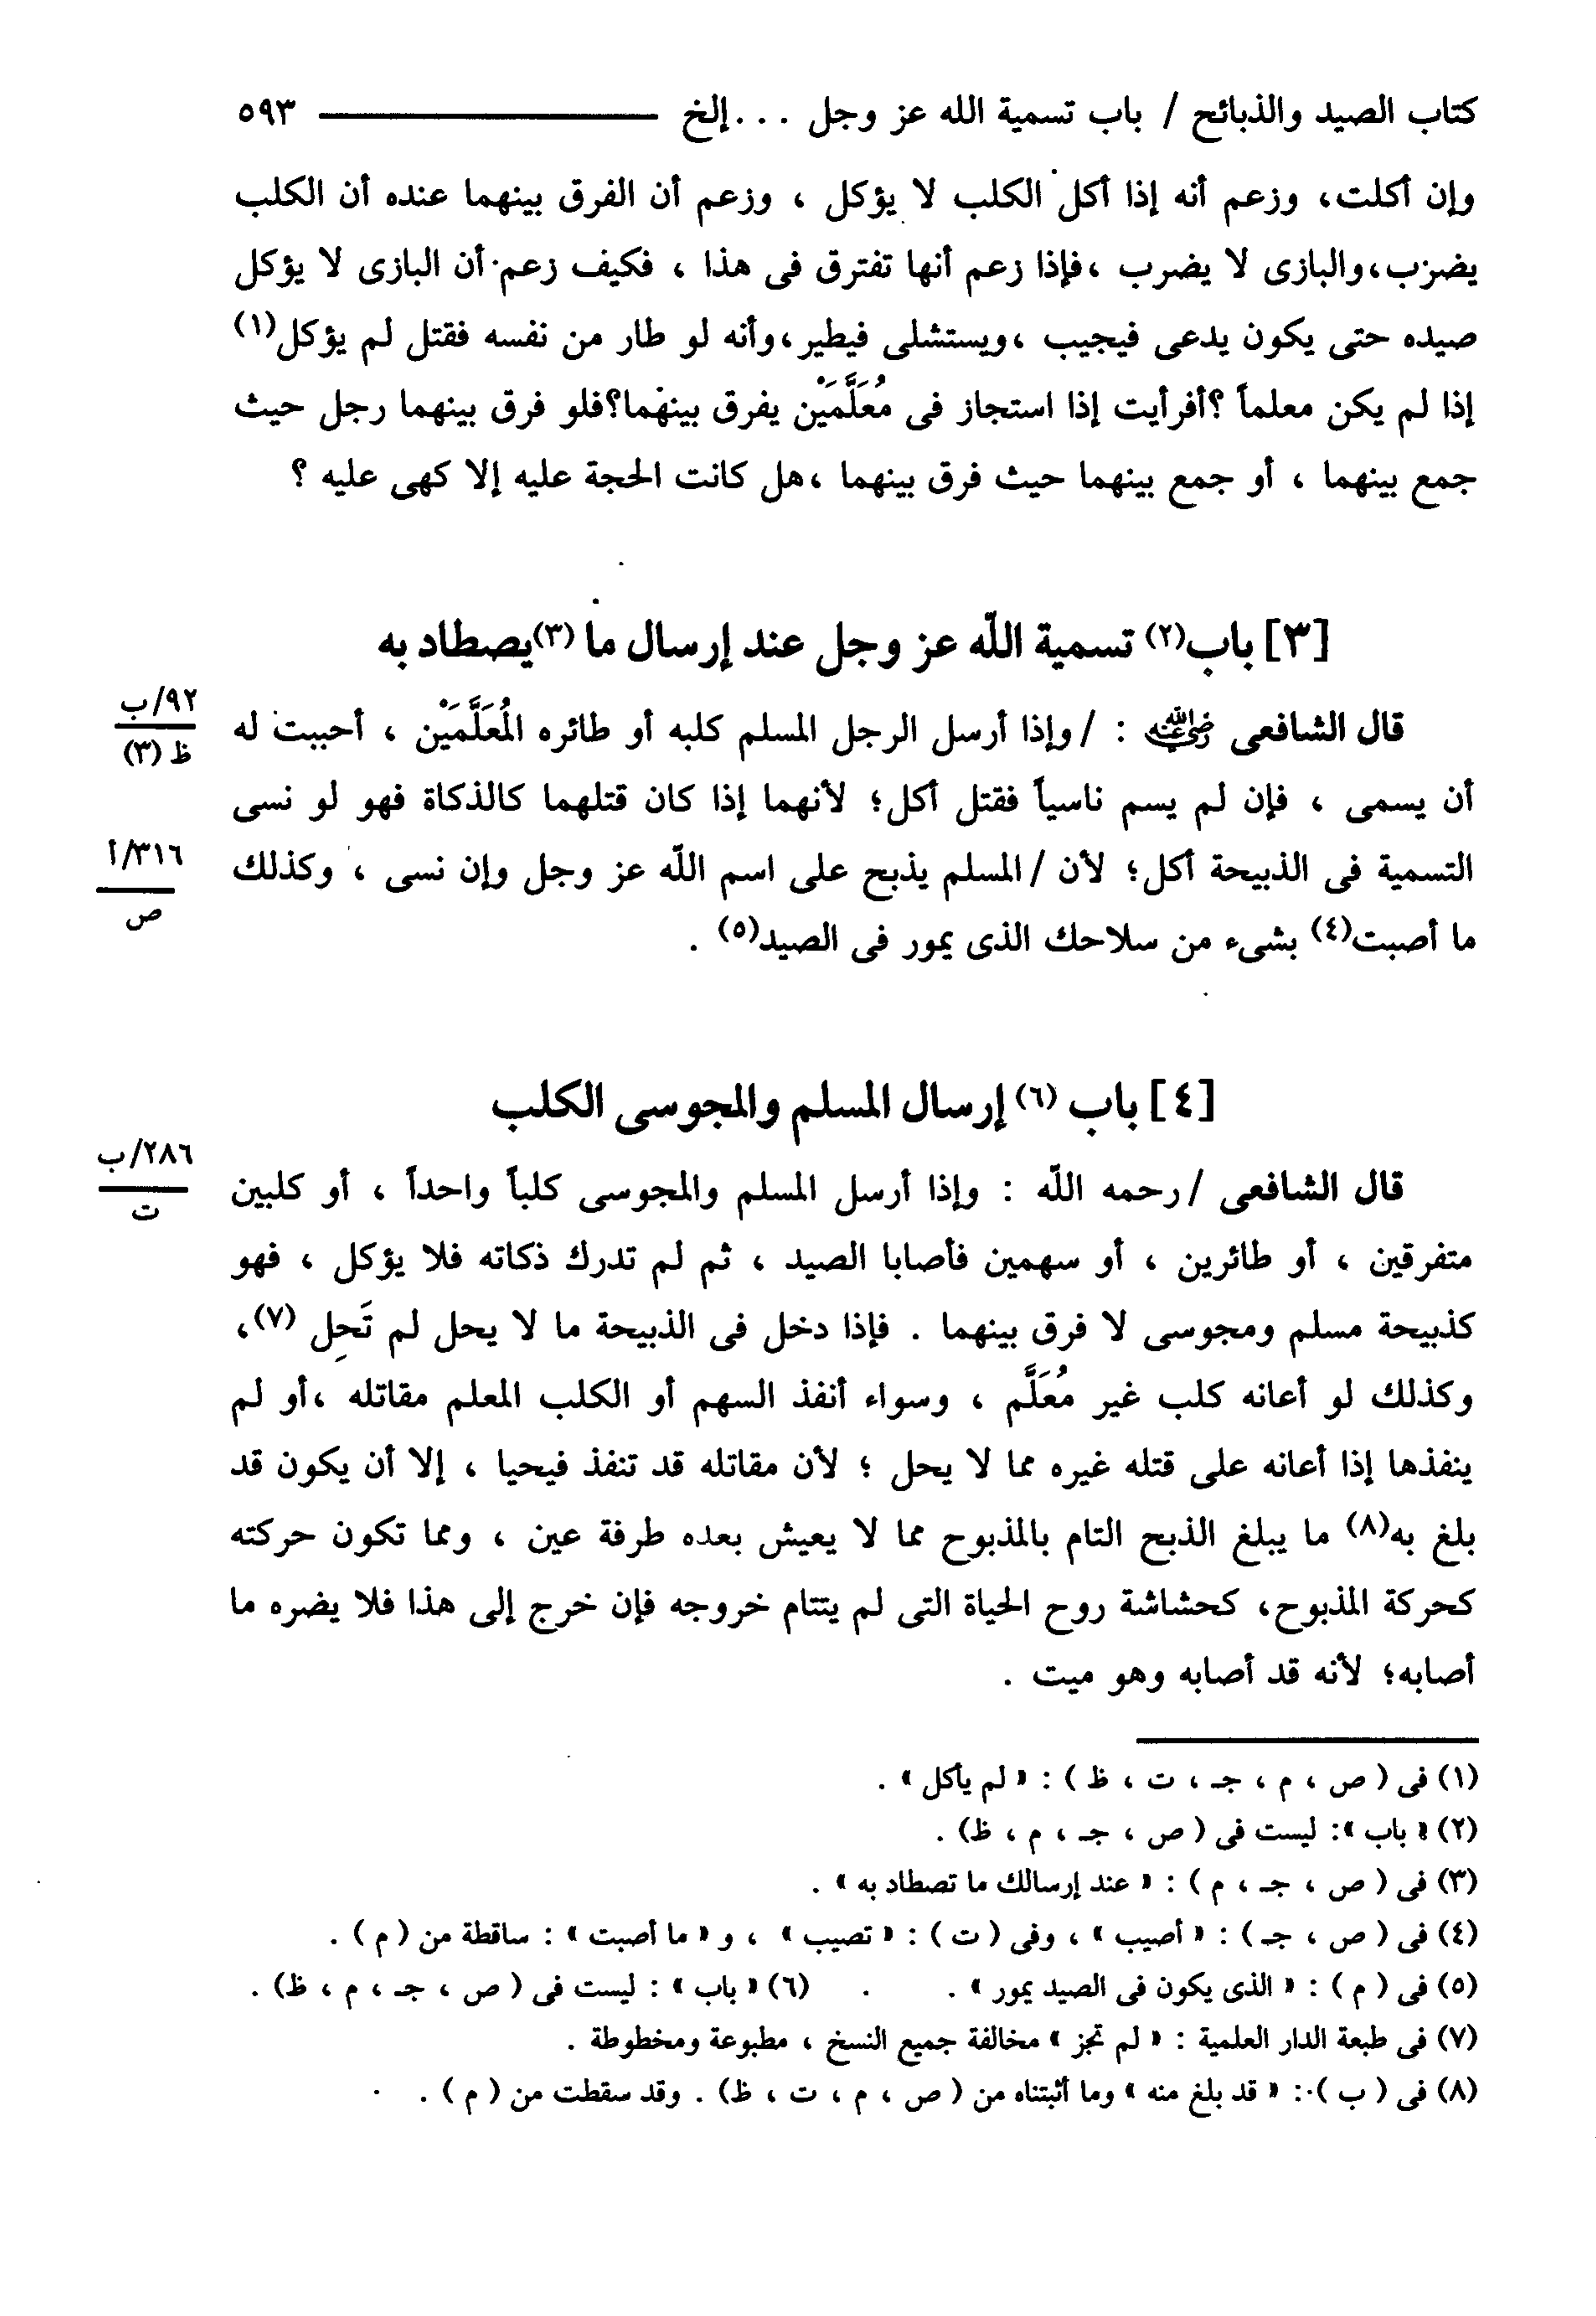 كتاب الصيد والذبائح / باب تسمية الله عز وجل ... إلخ ـــــــــ ٥٩٣
وإن أكلت، وزعم أنه إذا أكل الكلب لا يؤكل ، وزعم أن الفرق بينهما عنده أن الكلب
يضرب،والبازى لا يضرب ،فإذا زعم أنها تفترق فى هذا ، فكيف زعم أن البازى لا يؤكل
صيده حتى يكون يدعى فيجيب ،ويستشلى فيطير،وأنه لو طار من نفسه فقتل لم يؤكل(١)
إذا لم يكن معلماً ؟أفرأيت إذا استجاز فى مُعَلَّمَيْن يفرق بينهما؟فلو فرق بينهما رجل حيث
جمع بينهما ، أو جمع بينهما حيث فرق بينهما ،هل كانت الحجة عليه إلا كهى عليه ؟
[٣] باب(٢) تسمية الله عز وجل عند إرسال ما (٣)يصطاد به
قال الشافعى رضي الله عنه : /وإذا أرسل الرجل المسلم كلبه أو طائره المُعَلَّمَيْن ، أحببت له
٩٢/ب
ظ (٣)
أن يسمى ، فإن لم يسم ناسياً فقتل أكل؛ لأنهما إذا كان قتلهما كالذكاة فهو لو نسى
التسمية فى الذبيحة أكل؛ لأن /المسلم يذبح على اسم الله عز وجل وإن نسى ، وكذلك
٣١٦/أ
ص
ما أصبت(٤) بشىء من سلاحك الذى يمور فى الصيد(٥) .
[٤] باب (٦) إرسال المسلم والمجوسى الكلب
قال الشافعى /رحمه الله : وإذا أرسل المسلم والمجوسى كلباً واحداً ، أو كلبين
٢٨٦/ب
ت
متفرقين ، أو طائرين ، أو سهمين فأصابا الصيد ، ثم لم تدرك ذكاته فلا يؤكل ، فهو
كذبيحة مسلم ومجوسى لا فرق بينهما . فإذا دخل فى الذبيحة ما لا يحل لم تَحِل (٧)،
وكذلك لو أعانه كلب غير مُعَلَّم ، وسواء أنفذ السهم أو الكلب المعلم مقاتله ،أو لم
ينفذها إذا أعانه على قتله غيره مما لا يحل ؛ لأن مقاتله قد تنفذ فيحيا ، إلا أن يكون قد
بلغ به(٨) ما يبلغ الذبح التام بالمذبوح مما لا يعيش بعده طرفة عين ، ومما تكون حركته
كحركة المذبوح، كحشاشة روح الحياة التى لم يتتام خروجه فإن خرج إلى هذا فلا يضره ما
أصابه؛ لأنه قد أصابه وهو ميت .
(١) فى ( ص ، م ، جـ ، ت ، ظ ) : « لم يأكل » .
(٢) « باب »: ليست فى ( ص ، جـ ، م ، ظ) .
(٣) فى ( ص ، جـ ، م ) : « عند إرسالك ما تصطاد به » .
(٤) فى ( ص ، جـ ) : « أصيب » ، وفى ( ت ) : « تصيب » ، و « ما أصبت » : ساقطة من ( م ) .
(٥) فى ( م ) : « الذى يكون فى الصيد يمور » . (٦) « باب » : ليست فى ( ص ، جـ ، م ، ظ) .
(٧) فى طبعة الدار العلمية : « لم تجز » مخالفة جميع النسخ ، مطبوعة ومخطوطة .
(٨) فى ( ب ) : « قد بلغ منه » وما أثبتناه من ( ص ، م ، ت ، ظ) . وقد سقطت من ( م ) .